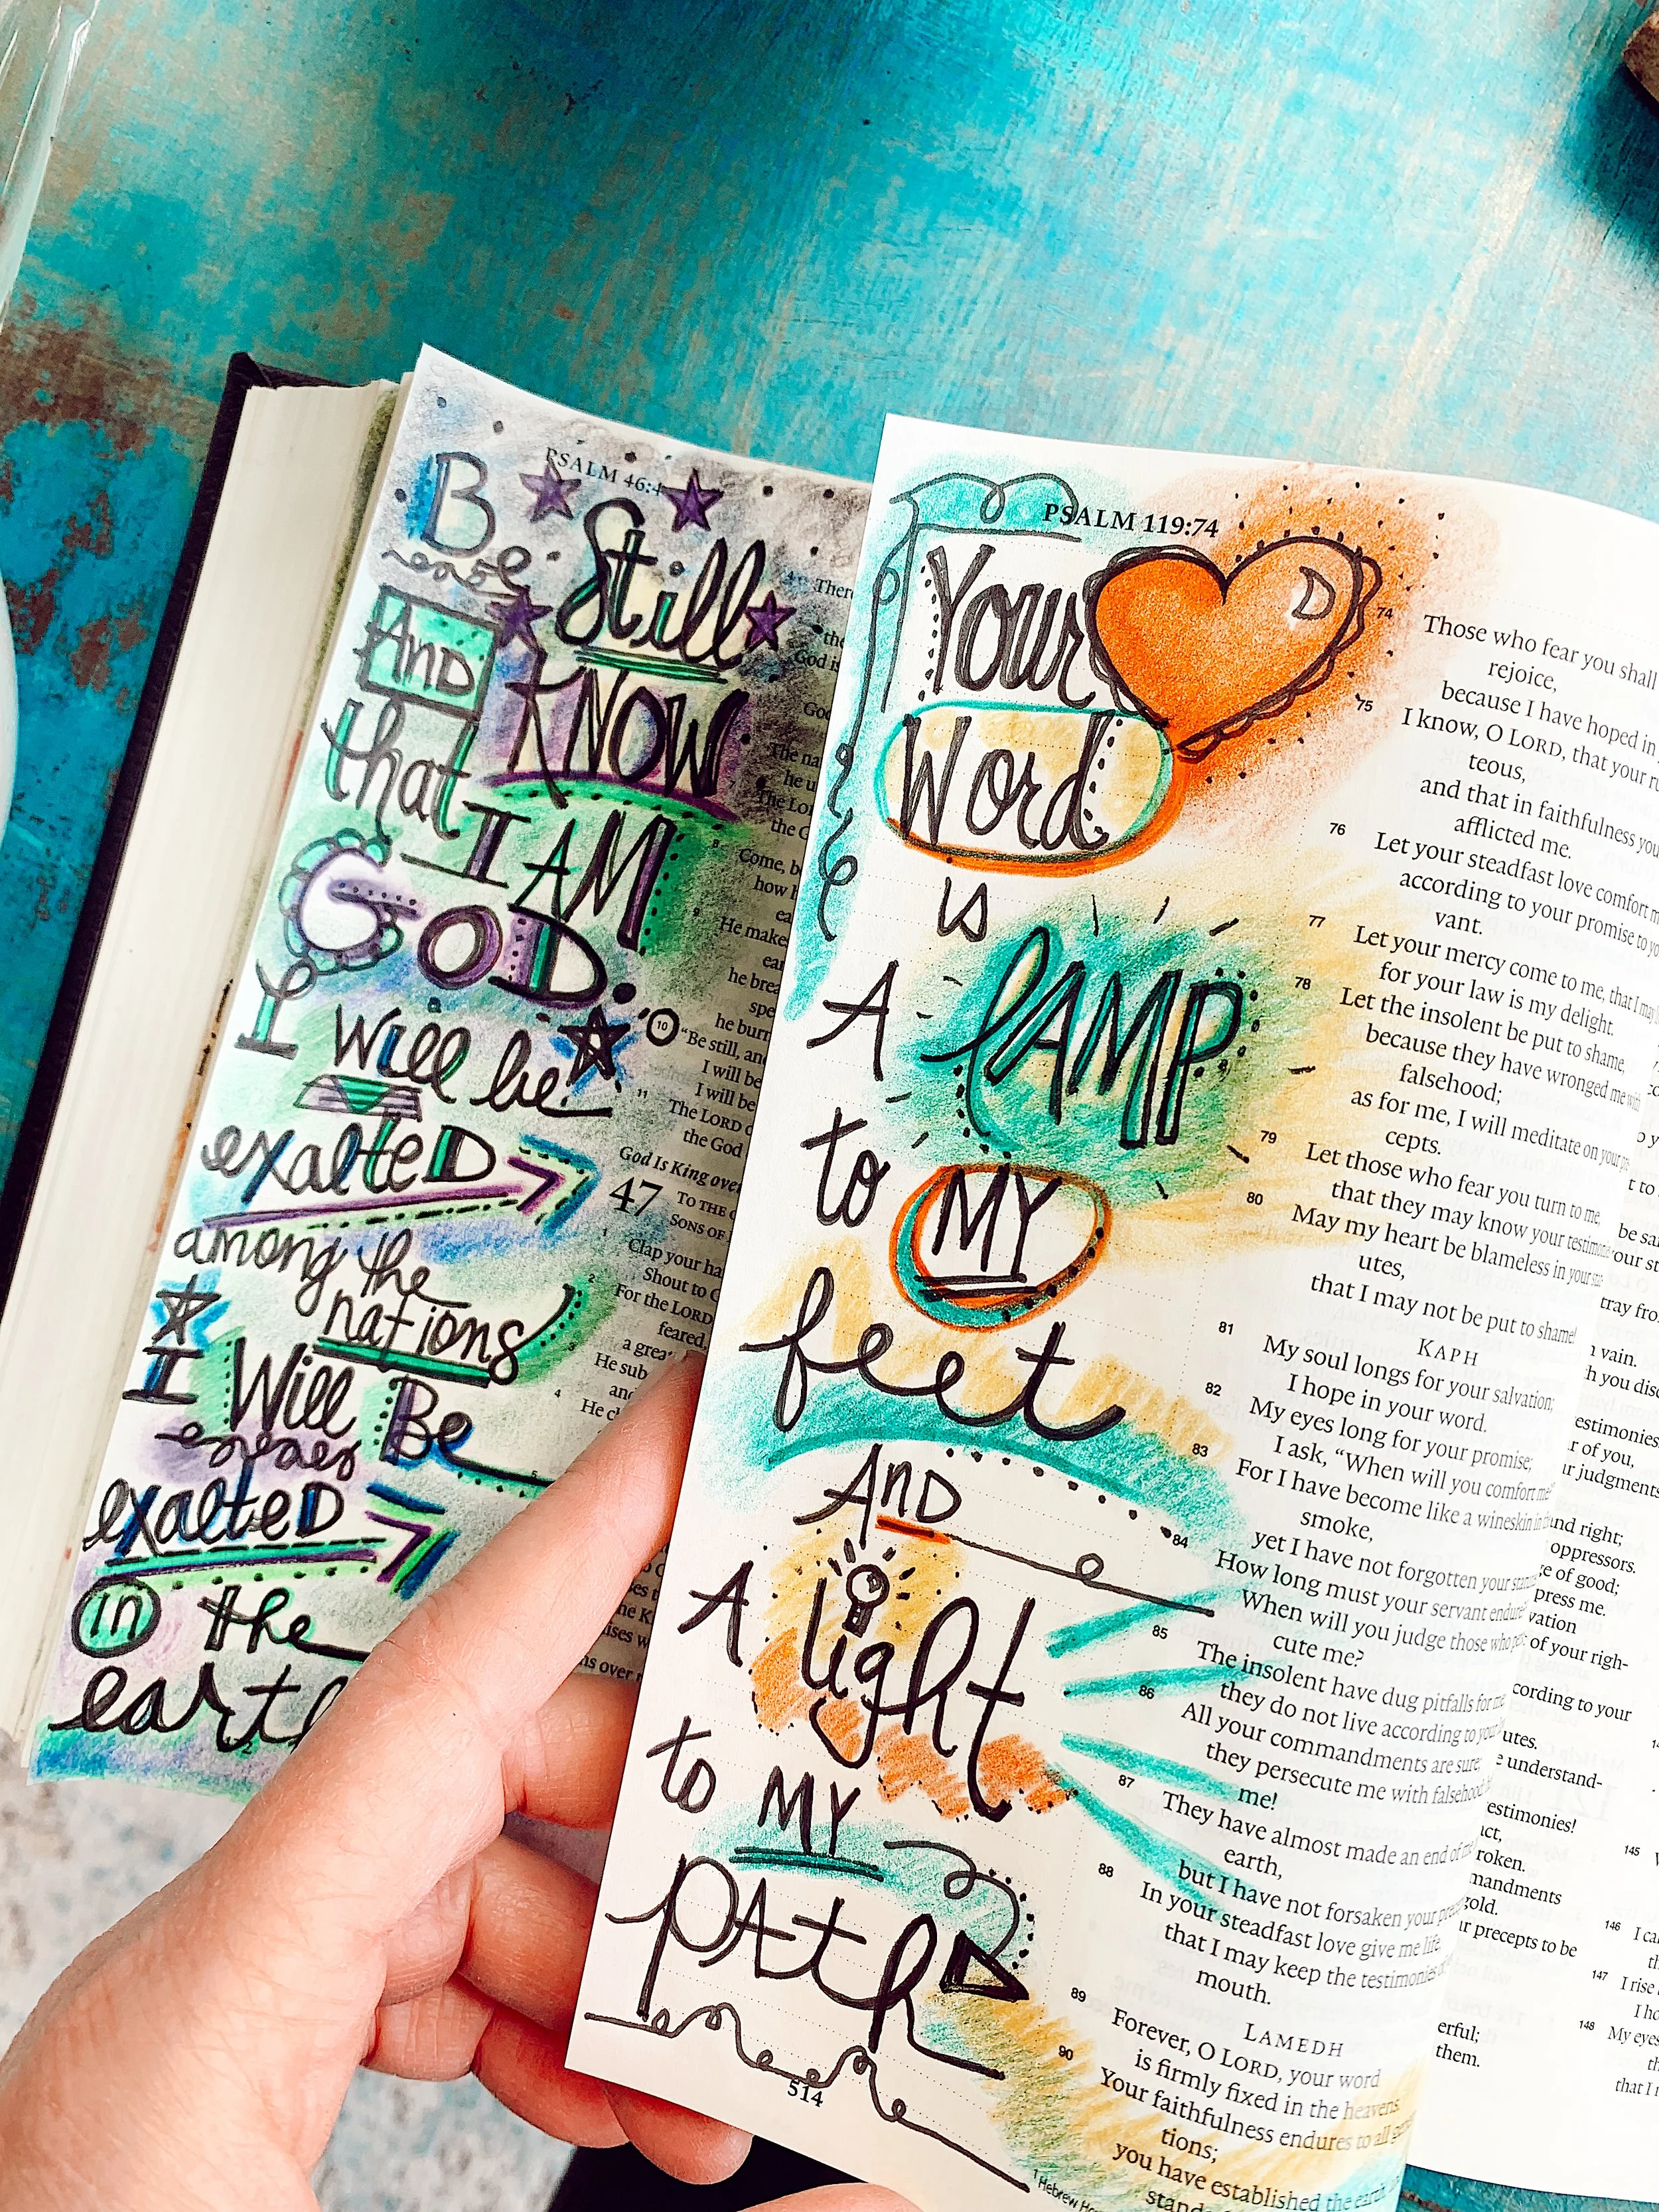 PSALM 46:4
Be Still
AND KNOW
that I AM
GOD.
I will be
exalteD
among the
nations
I Will Be
exalteD
in the
earth
There
the
God is
The na
he u
The Lor
the G
Come, b
how h
He make
he brea
spe
he burn
10 "Be still, an
I will be
I will be
11 The LORD
the God
God Is King over
47 TO THE
SONS OF
1 Clap your ha
Shout to
2 For the LORD
feared,
3 a grea
He sub
and
4 He ch
5
PSALM 119:74
Your
Word
is
A LAMP
to MY
feet
AnD
A light
to MY
PAth
514
74 Those who fear you shall
rejoice,
because I have hoped in
75 I know, O LORD, that your
teous,
and that in faithfulness you
afflicted me.
76 Let your steadfast love comfort
according to your promise to
vant.
77 Let your mercy come to me, that I may
for your law is my delight.
78 Let the insolent be put to shame,
because they have wronged me with
falsehood;
as for me, I will meditate on your
cepts.
79 Let those who fear you turn to me,
that they may know your
80 May my heart be blameless in your
utes,
that I may not be put to shame!
KAPH
81 My soul longs for your salvation;
I hope in your word.
82 My eyes long for your promise;
I ask, "When will you comfort me?"
83 For I have become like a wineskin in
smoke,
yet I have not forgotten your
84 How long must your servant endure?
When will you judge those who
cute me?
85 The insolent have dug pitfalls for me;
they do not live according to your
86 All your commandments are sure;
they persecute me with falsehood;
me!
87 They have almost made an end of me
earth,
but I have not forsaken your
88 In your steadfast love give me life,
that I may keep the testimonies
mouth.
LAMEDH
89 Forever, O LORD, your word
is firmly fixed in the heavens.
90 Your faithfulness endures to all
tions;
you have established the earth,
1 Hebrew
vain.
of you,
judgments
and right;
oppressors.
of good;
press me.
of your righ-
cording to your
utes.
understand-
estimonies!
mandments
gold.
precepts to be
them.
145
146 I
147 I rise
I ho
148 My eyes
that I